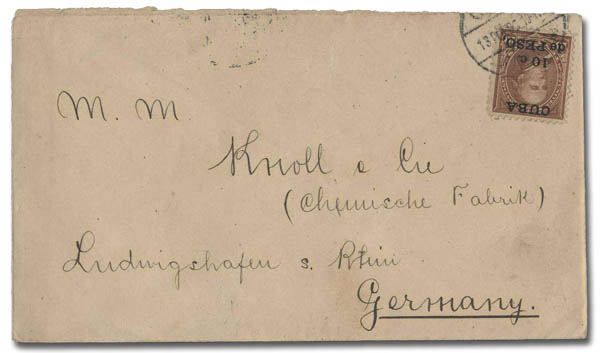 CUBA
10 c.
de PESO
M. M
Knoll e Cie
(Chemische Fabrik)
Ludwigshafen s. Rhin
Germany.